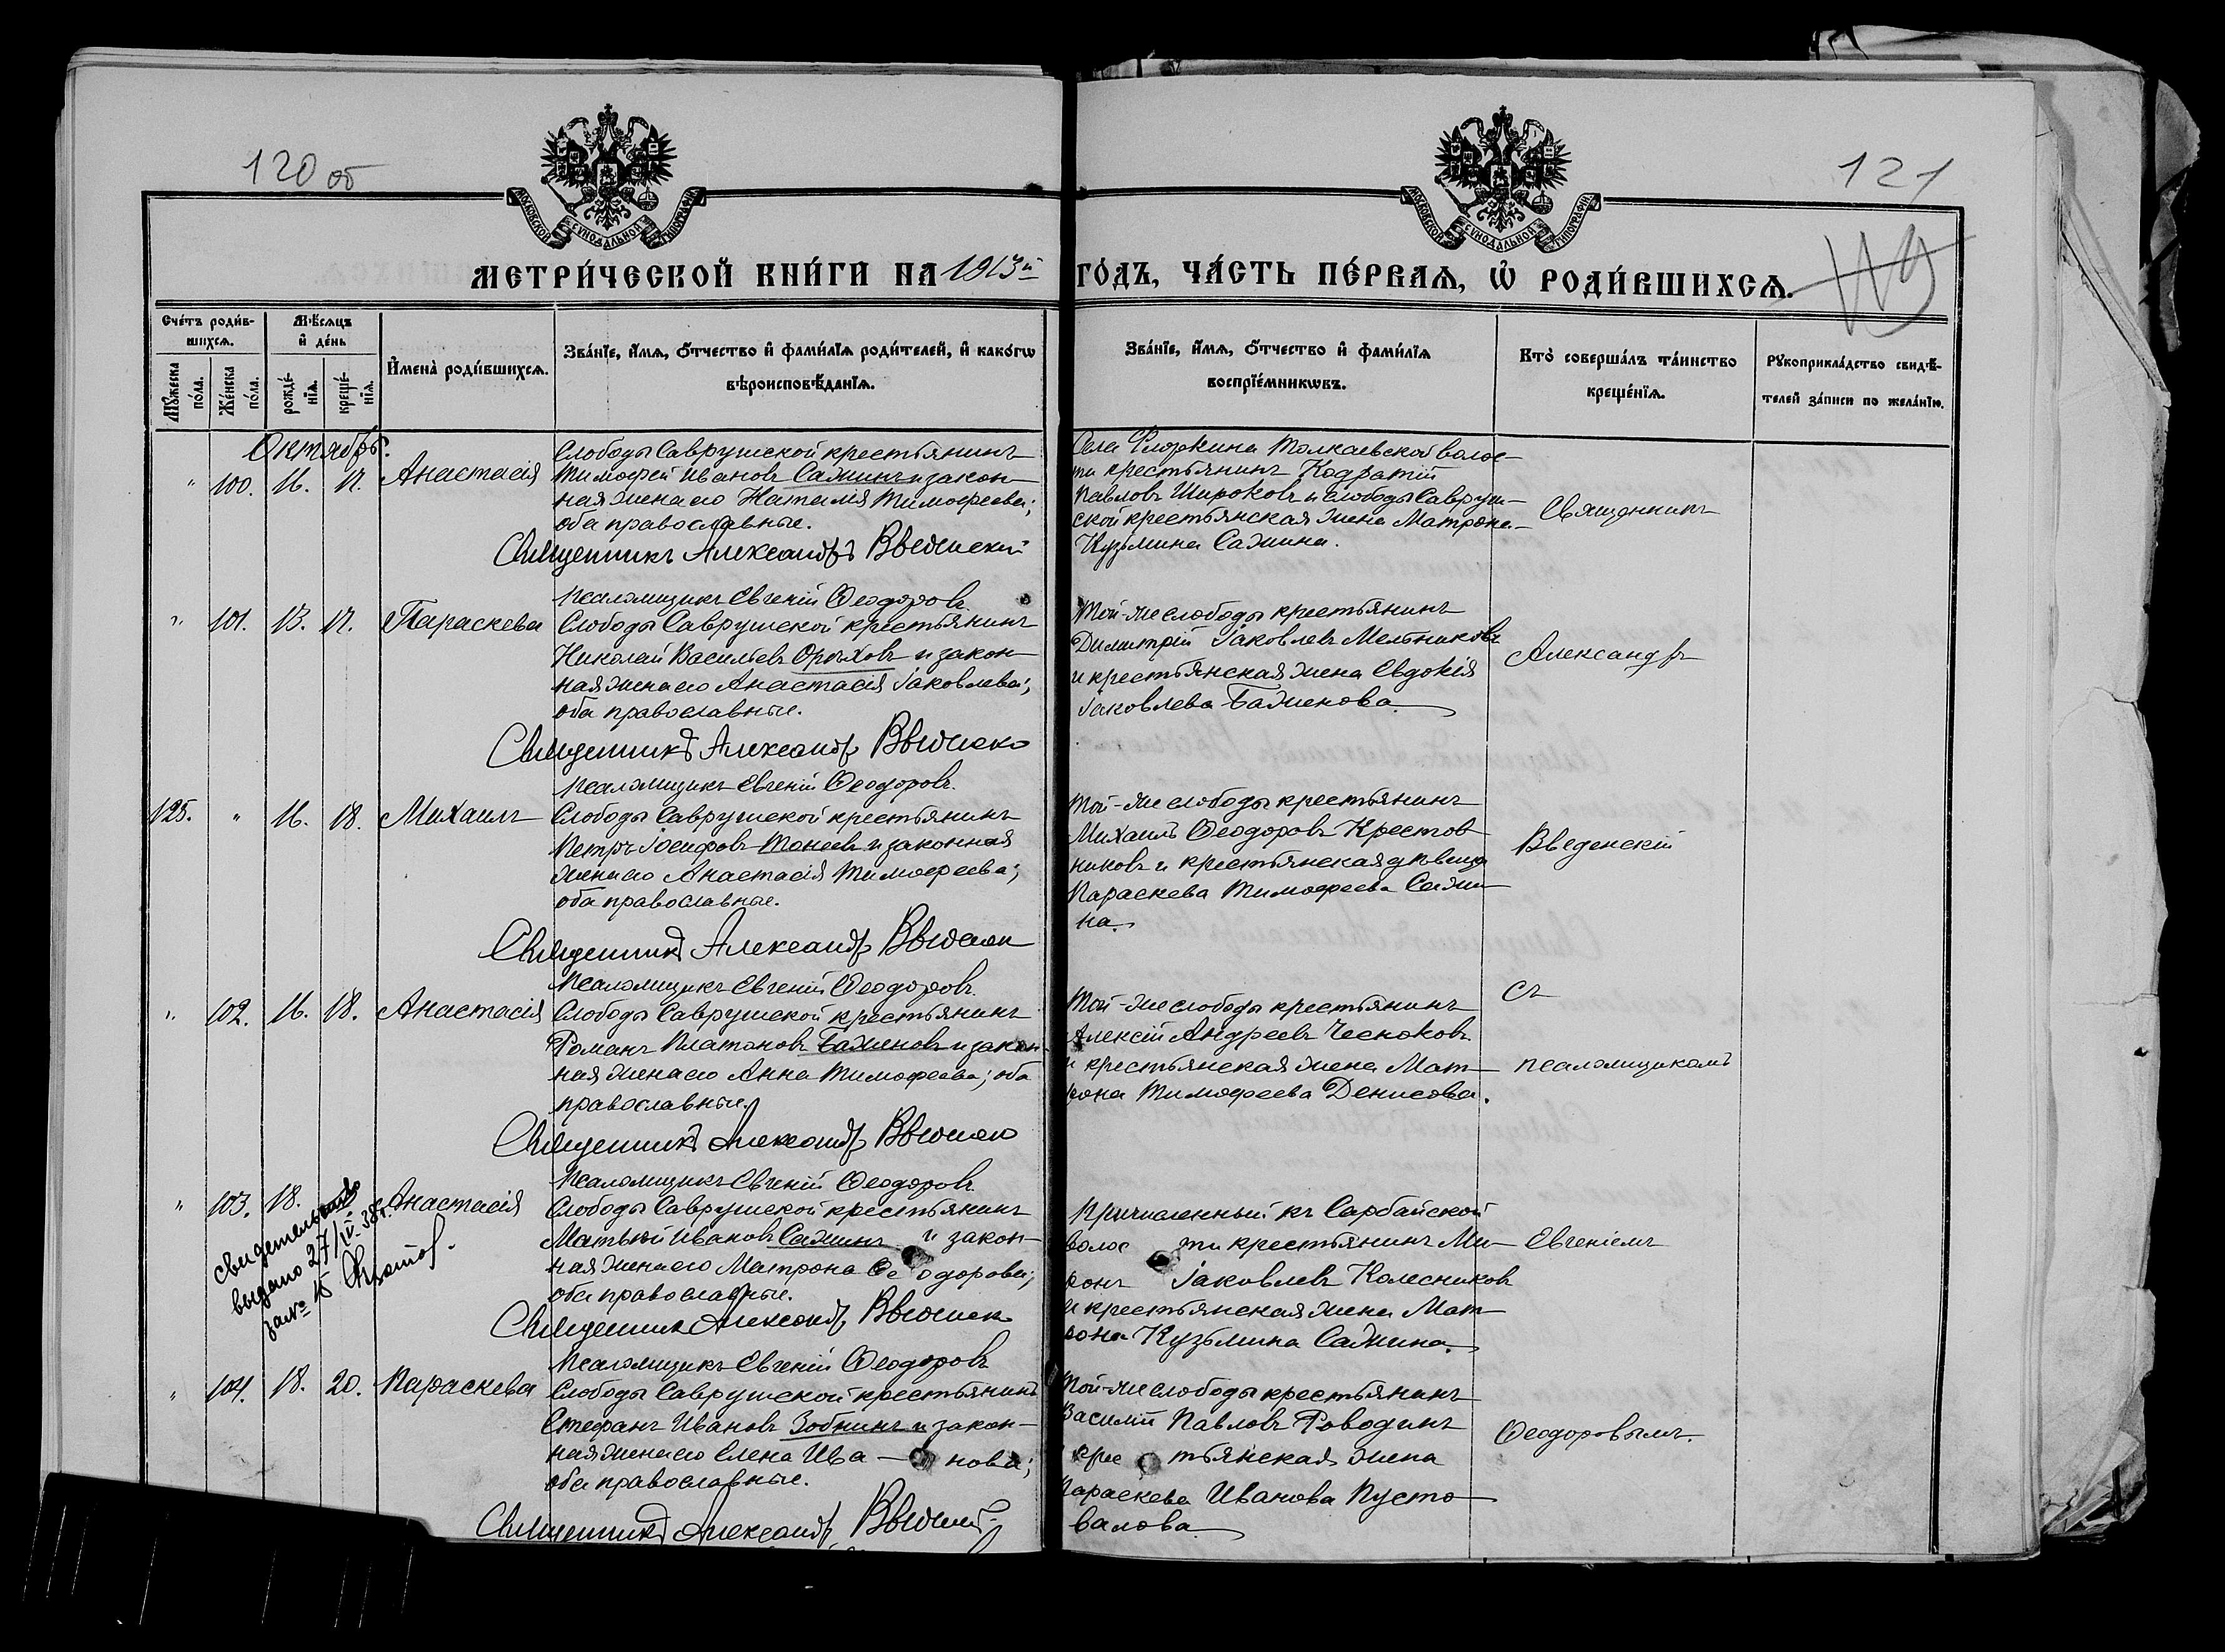 120 об
121
119
МОСКОВСКОЙ СУНОДАЛЬНОЙ ТИПОГРАФІИ
МОСКОВСКОЙ СУНОДАЛЬНОЙ ТИПОГРАФІИ
МЕТРИ́ЧЕСКОЙ КНИ́ГИ НА 1913й ГО́ДЪ, ЧА́СТЬ ПЕ́РВАЯ, Ѽ РОДИ́ВШИХСЯ.
Сче́тъ роди́в-
шихся.
Му́жеска по́ла.
Же́нска по́ла.
Мѣ́сяцъ и҆ де́нь
рожде́-нїя.
креще́-нїя.
И҆мена̀ роди́вшихся.
Зва́нїе, и҆́мя, ѻ҆́тчество и҆ фами́лїя роди́телей, и҆ како́гѡ
вѣроисповѣ́данїя.
Зва́нїе, и҆́мя, ѻ҆́тчество и҆ фами́лїя
воспрїе́мникѡвъ.
Кто̀ соверша́лъ та́инство
креще́нїя.
Рукоприкла́дство свидѣ́-
телей за́писи по жела́нїю.
Октябрь.
" 100. 16. 17. Анастасія
Слободы Саврушской крестьянинъ
Тимофей Ивановъ Сажинъ и закон-
ная жена его Наталія Тимофеева;
оба православные.
Священникъ Александръ Введенскій
Псаломщикъ Евгеній Ѳеодоровъ.
Села Флоркина Толкаевской волос-
ти крестьянинъ Кодратій
Павловъ Широковъ и слободы Савруш-
ской крестьянская жена Матрона
Кузьмина Сажина.
Священникъ
" 101. 13. 17. Параскева
Слободы Саврушской крестьянинъ
Николай Васильевъ Орѣховъ и закон-
ная жена его Анастасія Іаковлева;
оба православные.
Священникъ Александръ Введенско
Псаломщикъ Евгеній Ѳеодоровъ.
Той-же слободы крестьянинъ
Димитрій Іаковлевъ Мельниковъ
и крестьянская жена Евдокія
Іаковлева Баженова.
Александръ
125. " 16. 18. Михаилъ
Слободы Саврушской крестьянинъ
Петръ Іосифовъ Тонеевъ и законная
жена его Анастасія Тимофеева;
оба православные.
Священникъ Александръ Введенск
Псаломщикъ Евгеній Ѳеодоровъ.
Той-же слободы крестьянинъ
Михаилъ Ѳеодоровъ Крестов-
никовъ и крестьянская дѣвица
Параскева Тимофеева Сажи-
на.
Введенскій
" 102. 16. 18. Анастасія
Слободы Саврушской крестьянинъ
Романъ Платоновъ Баженовъ и закон-
ная жена его Анна Тимофеева; оба
православные.
Священникъ Александръ Введенско
Псаломщикъ Евгеній Ѳеодоровъ.
Той-же слободы крестьянинъ
Алексій Андреевъ Чесноковъ
и крестьянская жена Мат-
рона Тимофеева Денисова.
съ
псаломщикомъ
" 103. 18. Анастасія
свидетельство
выдано 27/IV. 38г.
за № 15
Слободы Саврушской крестьянинъ
Матѳей Ивановъ Сажинъ и закон-
ная жена его Матрона Ѳеодорова;
оба православные.
Священник Александръ Введенск
Псаломщикъ Евгеній Ѳеодоровъ
Причисленный къ Сарбайской
волости крестьянинъ Ми-
ронъ Іаковлевъ Колесниковъ
и крестьянская жена Мат-
рона Кузьмина Сажина.
Евгеніемъ
" 104. 18. 20. Параскева
Слободы Саврушской крестьянинъ
Стефанъ Ивановъ Зобнинъ и закон-
ная жена его Елена Ива-нова;
оба православные.
Священникъ Александръ Введенск
Той-же слободы крестьянинъ
Василій Павловъ Роводинъ
крестьянская жена
Параскева Иванова Пусто-
валова.
Ѳеодоровымъ.